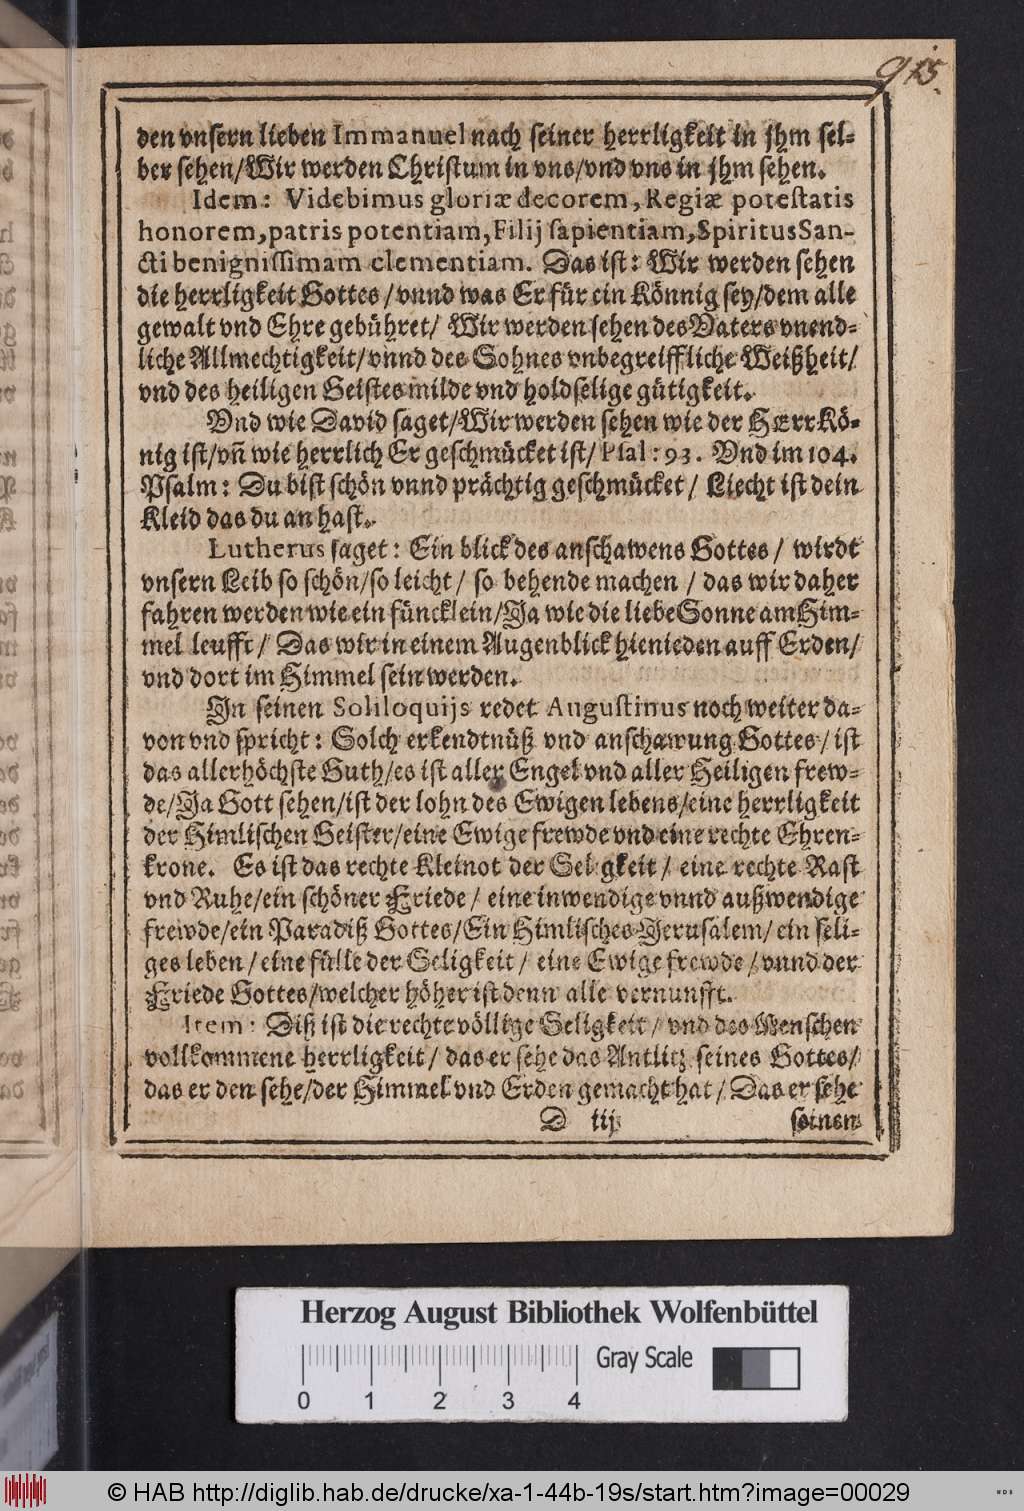 915.
den vnsern lieben Immanuel nach seiner herrligkeit in jhm sel-
ber sehen/Wir werden Christum in vns/vnd vns in jhm sehen.
Idem: Videbimus gloriæ decorem, Regiæ potestatis
honorem, patris potentiam, Filij sapientiam, Spiritus San-
cti benignissimam clementiam. Das ist: Wir werden sehen
die herrligkeit Gottes/vnnd was Er für ein Könnig sey/dem alle
gewalt vnd Ehre gebühret/ Wir werden sehen des Vaters vnend-
liche Allmechtigkeit/vnnd des Sohnes vnbegreiffliche Weißheit/
vnd des heiligen Geistes milde vnd holdselige gütigkeit.
Vnd wie David saget/Wir werden sehen wie der HErr Kö-
nig ist/vñ wie herrlich Er geschmücket ist/Psal: 93. Vnd im 104.
Psalm: Du bist schön vnnd prächtig geschmücket/ Liecht ist dein
Kleid das du an hast.
Lutherus saget: Ein blick des anschawens Gottes/ wirdt
vnsern Leib so schön/so leicht/ so behende machen / das wir daher
fahren werden wie ein füncklein/Ja wie die liebe Sonne am Him-
mel leufft/ Das wir in einem Augenblick hienieden auff Erden/
vnd dort im Himmel sein werden.
In seinen Soliloquijs redet Augustinus noch weiter da-
von vnd spricht: Solch erkendtnüß vnd anschawung Gottes/ ist
das allerhöchste Guth/es ist aller Engel vnd aller Heiligen frew-
de/Ja Gott sehen/ist der lohn des Ewigen lebens/eine herrligkeit
der Himlischen Geister/eine Ewige frewde vnd eine rechte Ehren-
krone. Es ist das rechte Kleinot der Seligkeit/ eine rechte Rast
vnd Ruhe/ein schöner Friede/ eine inwendige vnnd außwendige
frewde/ein Paradiß Gottes/Ein Himlisches Jerusalem/ ein seli-
ges leben/eine fülle der Seligkeit/ eine Ewige frewde/vnnd der
Friede Gottes/welcher höher ist denn alle vernunfft.
Item: Diß ist die rechte völlige Seligkeit/ vnd des Menschen
vollkommene herrligkeit/ das er sehe das Antlitz seines Gottes/
das er den sehe/der Himmel vnd Erden gemacht hat/ Das er sehe
D iij seinen
Herzog August Bibliothek Wolfenbüttel
Gray Scale
0 1 2 3 4
© HAB http://diglib.hab.de/drucke/xa-1-44b-19s/start.htm?image=00029
WDB